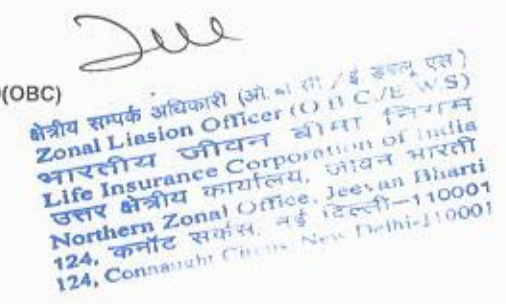 (OBC)
क्षेत्रीय सम्पर्क अधिकारी (ओ. बी सी / ई डब्लू एस)
Zonal Liasion Officer (O B C /E W S)
भारतीय जीवन बीमा निगम
Life Insurance Corporation of India
उत्तर क्षेत्रीय कार्यालय, जीवन भारती
Northern Zonal Office, Jeevan Bharti
124, कनॉट सर्कस, नई दिल्ली-110001
124, Connaught Circus, New Delhi-110001